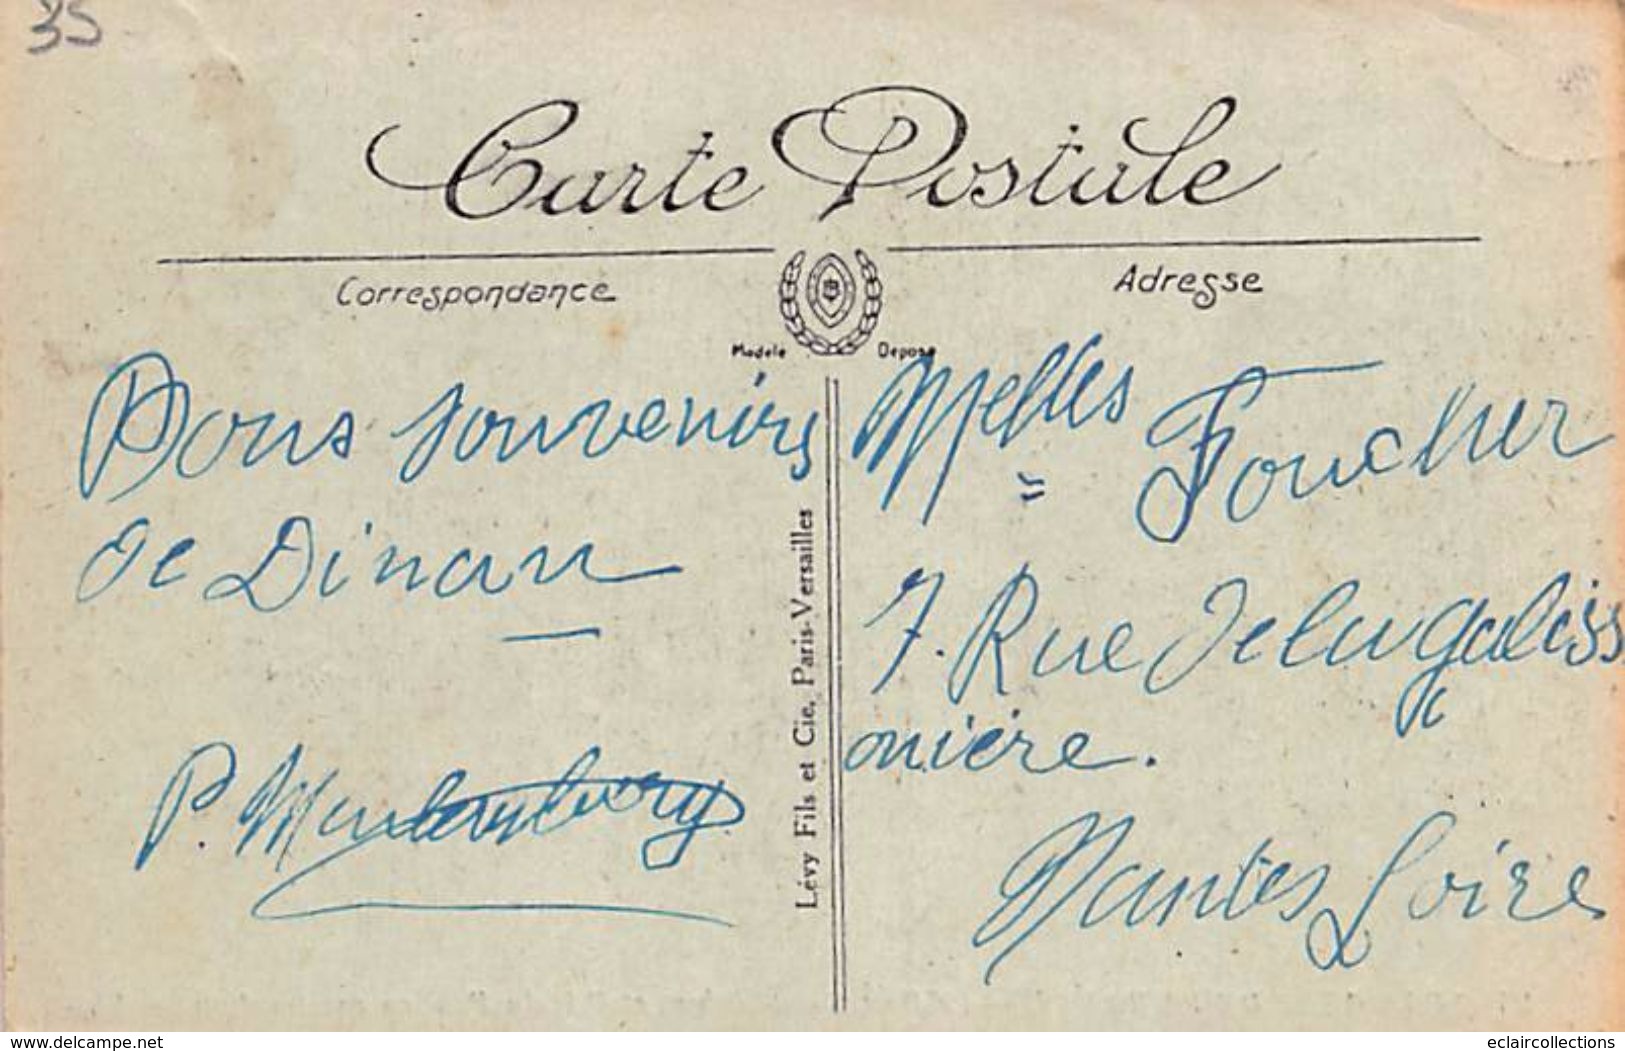 35
Carte Postale
Correspondance
Adresse
Modele Deposé
Bons souvenirs
de Dinan
P.
Lévy Fils et Cie, Paris-Versailles
Melles Foucher
7. Rue de la galiss
onière.
Nantes Loire
www.delcampe.net
eclaircollections